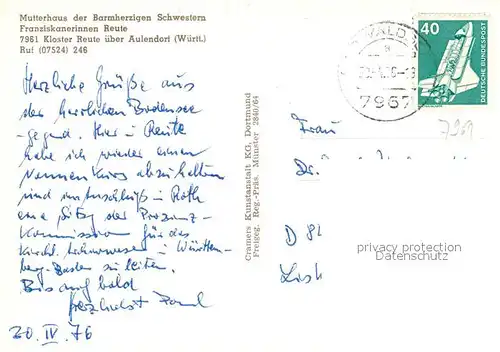 Mutterhaus der Barmherzigen Schwestern
Franziskanerinnen Reute
7961 Kloster Reute über Aulendorf (Württ.)
Ruf (07524) 246
Herzliche Grüße aus
der herrlichen Bodensee-
gegend. Hier in Reute
habe ich wieder einen
Nonnenkurs abzuhalten
und im Anschluß in Roth
eine Sitzg der
Kommission für das
in Württem-
berg-Baden zu leiten.
Bis auf bald
herzlichst Paul
20. IV. 76
Cramers Kunstanstalt KG, Dortmund
Freigeg. Reg.-Präs. Münster 2840/64
WALD
7967
40
DEUTSCHE BUNDESPOST
7969
Frau
Dr.
D 82
privacy protection
Datenschutz